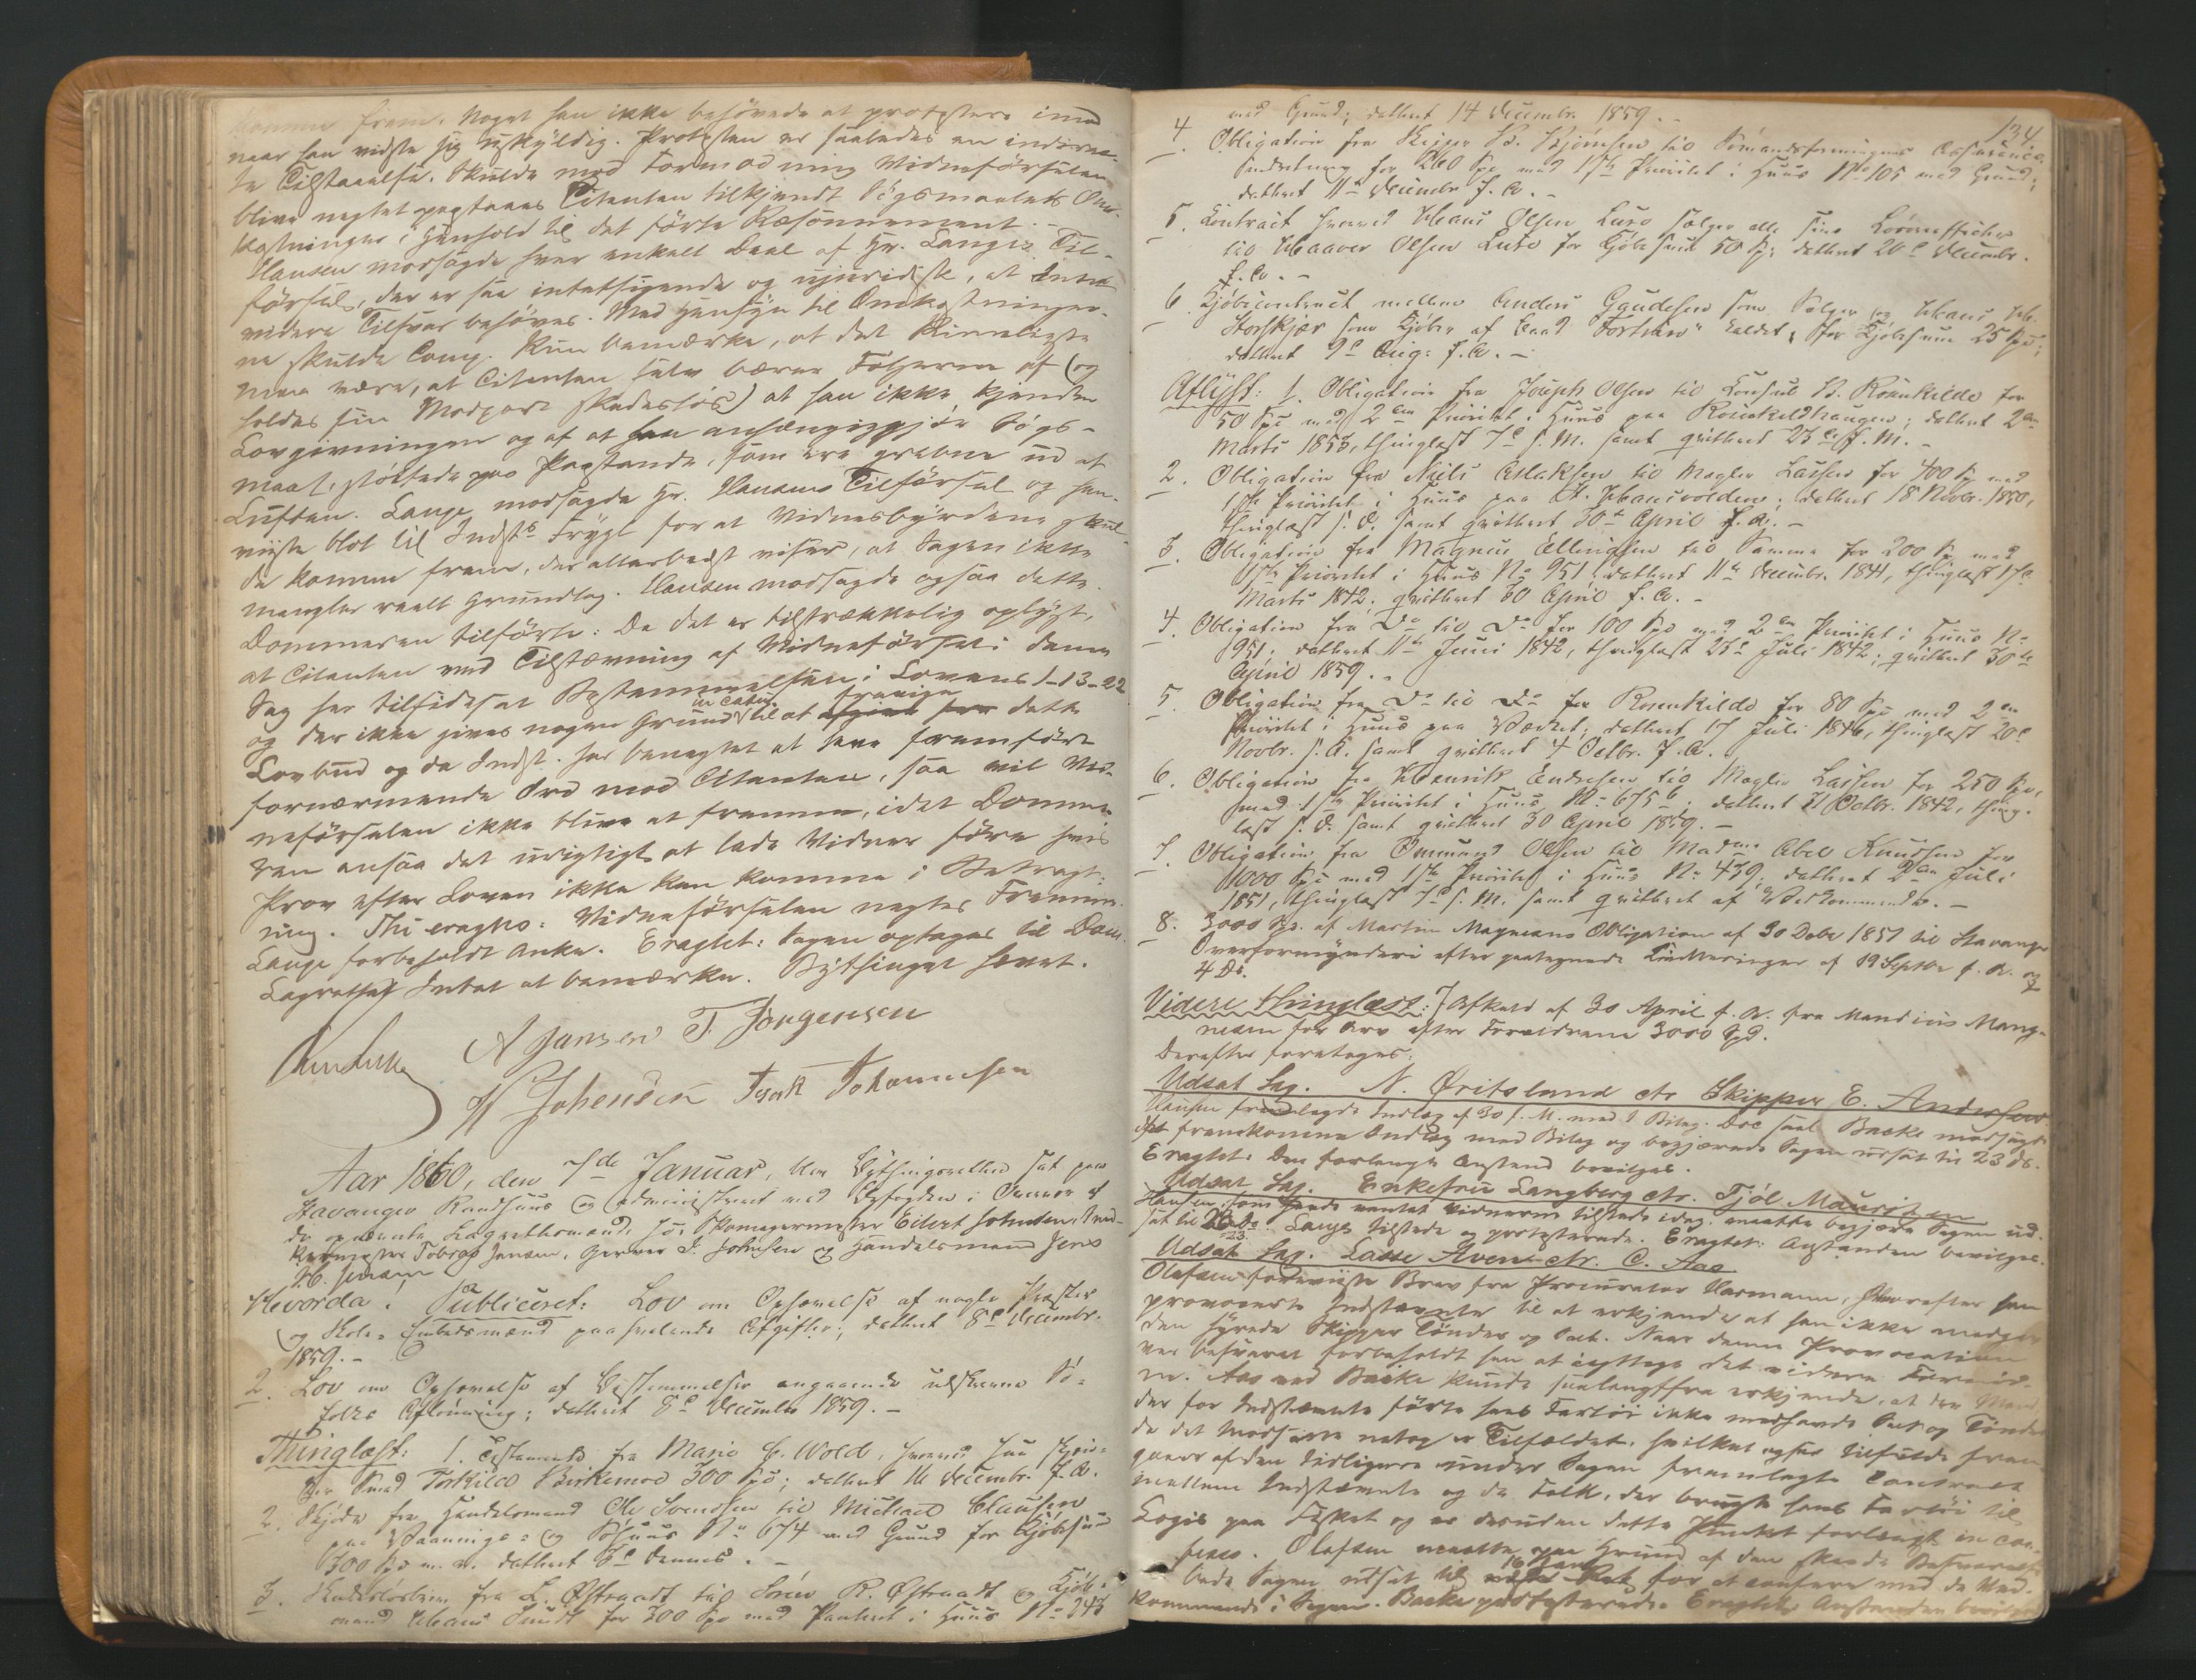 komme frem. Noget han ikke behövede at protestere imod
naar han vidste sig uskyldig. Protesten er saaledes en indirec-
te Tilstaaelse. Skulde mod Formodning Vidneførselen
blive negtet paastaaes Citanten tilkjendt Søgsmaalets Om-
kostninger i Henhold til det förte Ræsonnement. -
Hansen modsagde hver enkelt Deel af Hr. Langes Til-
försel, der er saa intetsigende og ujuridisk, at Intet
videre Tilsvar behöves. Med Hensyn til Omkostninger-
ne skulde Comp. kun bemærke, at det Rimeligste
maa være, at Citanten selv bærer Følgerne af (og
holder sin Modpart skadeslös) at han ikke kjender
Lovgivningen og af at han anhængiggjör Søgs-
maal, støttede paa Paastande, som ere grebne ud af
Luften. Lange modsagde Hr. Hansens Tilförsel og hen-
viste blot til Indst. Frygt for at Vidnesbyrdene skul-
de komme frem, der allerbedst viser, at Sagen ikke
mangler reelt Grundlag. Hansen modsagde ogsaa dette.
Dommeren tilførte: Da det er tilstrækkelig oplyst,
at Citanten ved Tilstævning af Vidneførsel i denne
Sag har tilsidesat Bestemmelsen i Lovens 1-13-22
og der ikke gives nogen Grund in casu til at fravige dette
Lovbud og da Indst. har benegtet at have fremført
fornærmende Ord mod Citanten, saa vil Vid-
neførselen ikke blive at fremme, idet Domme-
ren ansaa det urigtigt at lade Vidner føre hvis
Prov efter Loven ikke kan komme i Betragt-
ning. Thi eragtes: Vidneførselen negtes Fremme.
Lange forbeholdt Anke. Eragtet: Sagen optages til Dom.
Lagrettet Intet at bemærke. Bythinget hævet.
A Jansen T. Jörgensen
H Johensen Isak Johannesen
Aar 1860, den 7de Januar, blev Bythingsretten sat paa
Stavanger Raadhuus og administreret med Byfogden i Overvær af
de opnævnte Lagrettesmænd, for Skomagermester Eilert Johnsen,
Tobias Jansen, Garver I. Johnsen og Handelsmand Jens
Hvorda: Publiceret: Lov om Ophævelse af nogle Præster
og Skole-Embedsmænd paahvilende Afgifter; dateret 8de Decembr.
1859. -
2. Lov om Ophævelse af Bestemmelser angaaende udskrevne Sø-
folks Aflønning; dateret 8de Decembr 1859. -
Thinglæst: 1. Testament fra Marie C. Wold, hvorved hun skjen-
ker Smed Torkild Birkemoe 300 Spd; dateret 16 Decembr. f. A.
2. Skjøde fra Handelsmand Ole Svendsen til Michael Clausen
paa Vaanings- og Søhuus No 674 med Grund for Kjøbesum
300 Spd m. v. dateret 5te dennes. -
3. Skadesløsbrev fra L. Østraadt til Sören R. Østraadt og Kjöb-
mand Hans Sundt for 300 Spd med Panteret i Huus No 243
134
med Grund; dateret 14 Decembr 1859. -
4. Obligation fra Skipper B. Bjørnsen til Sømandsforeningens Assurance-
Indretning for 260 Spd med 1ste Prioritet i Huus No 105 med Grund;
dateret 11te Decembr f. A. -
5. Contract hvorved Hans Olsen Luro sælger alle sine Løsøreeffecter
til Haaver Olsen Luro for Kjøbesum 50 Sp; dateret 20de Decembr.
f. A. -
6. Kjøbecontract mellem Anders Gaudesen som Sælger og Hans
Storskjær som Kjøber af Baad "Forsøket" kaldet, for Kjøbesum 25 Spd;
dateret 9de Aug: f. A. -
Aflyst: 1. Obligation fra Joseph Olsen til Consul B. Rosenkilde for
50 Spd med 2den Prioritet i Huus paa Rosenkildhaugen; dateret 2den
Marts 1853, thinglæst 7de s. M. samt qvitteret 23de f. M. -
2. Obligation fra Niels Aslaksen til Mægler Lassen for 400 Sp med
1ste Prioritet i Huus paa St. Hansvolden; dateret 18 Novbr. 1850,
thinglæst s. D. samt qvitteret 30te April f. A. -
3. Obligation fra Magnus Ellingsen til Samme for 200 Sp med
1ste Prioritet i Huus No 951 dateret 11te Decembr. 1841, thinglæst 17de
Marts 1842; qvitteret 30 April f. A. -
4. Obligation fra Do til Do for 100 Spd med 2den Prioritet i Huus No
951; dateret 11te Juni 1842, thinglæst 25de Juli 1842; qvitteret 30te
April 1859. -
5. Obligation fra Do til Do for Rosenkilde for 80 Spd med 2den
Prioritet i Huus paa Værket; dateret 17 Juli 1846, thinglæst 20de
Novbr. s. A. samt qvitteret 4 Octbr. f. A. -
6. Obligation fra Henrik Endresen til Mægler Lassen for 250 Spd,
med 1ste Prioritet i Huus No 675b; dateret 31 Octbr. 1842, thing-
læst s. D. samt qvitteret 30 April 1859. -
7. Obligation fra Ommund Olsen til Madme Abel Knudsen for
1000 Spd med 1ste Prioritet i Huus No 439; dateret 2den Juli
1851, thinglæst 7de s. M. samt qvitteret af Vedkommende. -
8. 3000 Spd. af Martin Magnesens Obligation af 30 Decbr 1857 til Stavanger
Overformynderi efter paategnede Kvitteringer af 19 Septbr f. A. og
4 ds.
Videre thinglæst: Afkald af 30 April f. A. fra Mandius Mang-
nesen for Arv efter Forældrene 3000 Spd.
Derefter foretoges:
Udsat Sag. N. Øritsland ctr Skipper E. Andersen
Hansen fremlagde Indlæg af 30 f. M. med 1 Bilag. Backe modsagde
det fremkomne Indlæg med Bilag og begjærede Sagen udsat til 23 ds.
Eragtet: Den forlangte Anstand bevilges.
Udsat Sag. Enkefru Langberg ctr. Tjöl Mauritzen
Hansen, som havde ventet Vidnerne tilstede idag, maatte begjære Sagen ud-
sat til 23 ds. Lange tilstede og protesterede. Eragtet: Anstanden bevilges.
Udsat Sag. Lasse Aven ctr. C. Aas
Olafsen foreviste Brev fra Procurator Harmann, hvorefter han
provocerte Indstævnte til at erkjende at han ikke medgav
den hyrede Skipper Tönder og Salt. Naar denne Provocation
var besvaret forbeholdt han at iagttage det videre Fornød-
ne. Aas ved Backe kunde saalangtfra erkjende, at den Mand
der for Indstævnte førte hans Fartöi ikke medhavde Salt og Tønder
da det Modsatte netop er Tilfældet, hvilket ogsaa tilfulde frem-
gaaer af den tidligere under Sagen fremlagte Contract
mellem Indstævnte og de Folk, der brugte hans Fartöi til
Logis paa Fisket og er desuden dette Punctet forlængst in con-
fesso. Olafsen maatte paa Grund af den skeede Besvarelse
bede Sagen udsat til 16 Janr for at conferere med de Ved-
kommende i Sagen. Backe protesterede. Eragtet: Anstanden bevilges